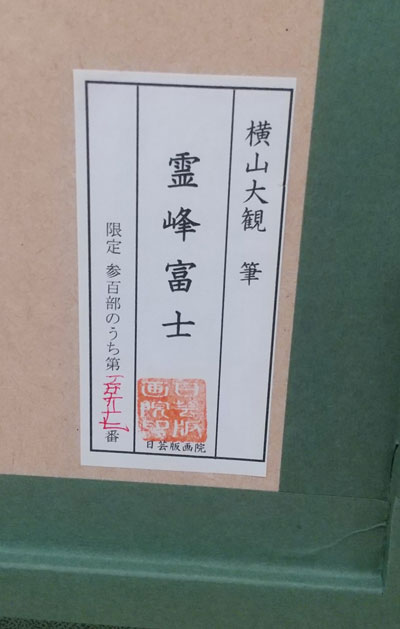 横山大観 筆
霊峰富士
日芸版画院
限定 参百部のうち第 番